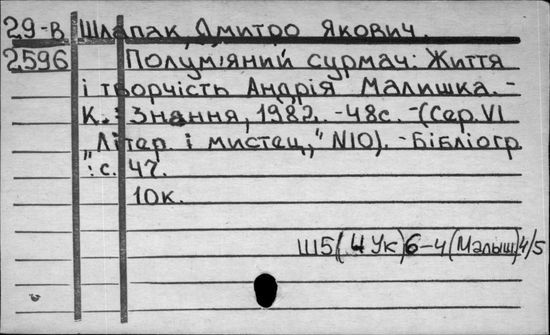 29-В Шлапак, Дмитро Якович.
2596 Полум'яний сурмач: Життя
і творчість Андрія Малишка. -
К.: Знання, 1982. -48с. -(Сер. VI
„Літер. і мистец.," N10). -Бібліогр
.: с. 47.
10к.
Ш5(4Ук)6-4(Малыш)4/5